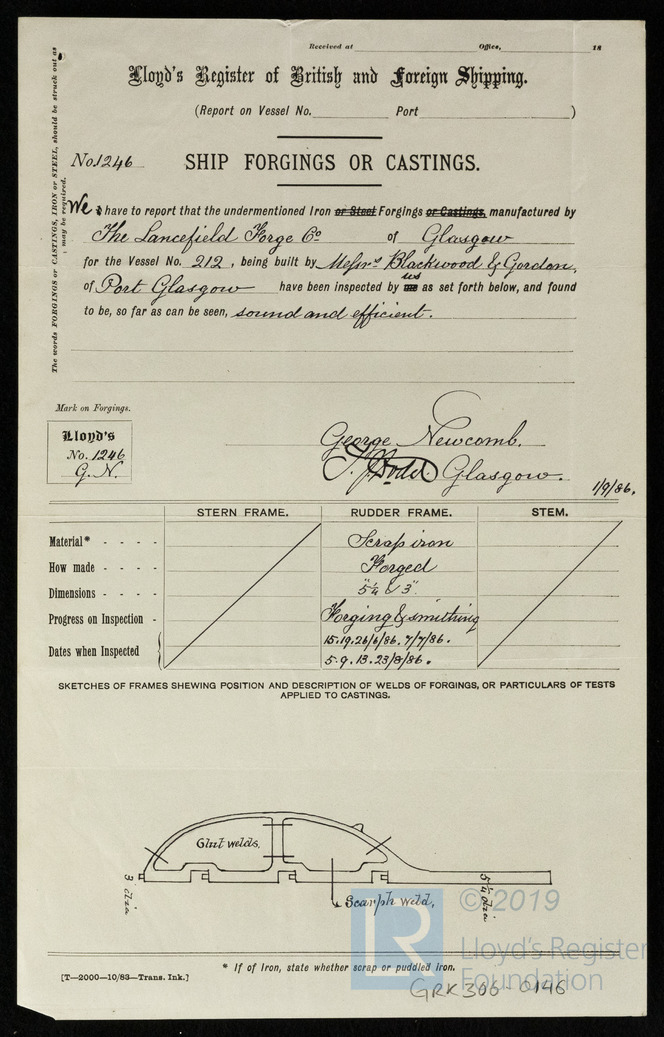 Received at Office, 18
Lloyd's Register of British and Foreign Shipping.
(Report on Vessel No. Port )
No. 1246 SHIP FORGINGS OR CASTINGS.
The words FORGINGS or CASTINGS, IRON or STEEL, should be struck out as may be required.
We have to report that the undermentioned Iron or Steel Forgings or Castings, manufactured by
The Lancefield Forge Co of Glasgow
for the Vessel No. 212, being built by Messrs Blackwood & Gordon,
of Port Glasgow have been inspected by us as set forth below, and found
to be, so far as can be seen, sound and efficient.
Mark on Forgings.
Lloyd's
No. 1246
G.N.
George Newcomb.
Glasgow.
1/9/86.
STERN FRAME. RUDDER FRAME. STEM.
Material* - - - - Scrap iron
How made - - - - Forged
Dimensions - - - - 5¼" & 3"
Progress on Inspection - Forging & smithing
Dates when Inspected 15.19.26/6/86. 7/7/86.
5.9.13.23/8/86.
SKETCHES OF FRAMES SHEWING POSITION AND DESCRIPTION OF WELDS OF FORGINGS, OR PARTICULARS OF TESTS
APPLIED TO CASTINGS.
Glut welds.
3 dia
Scarph weld.
5¼ dia
© 2019
LR
Lloyd's Register
Foundation
* If of Iron, state whether scrap or puddled Iron.
[T—2000—10/83—Trans. Ink.]
GRK306-0146